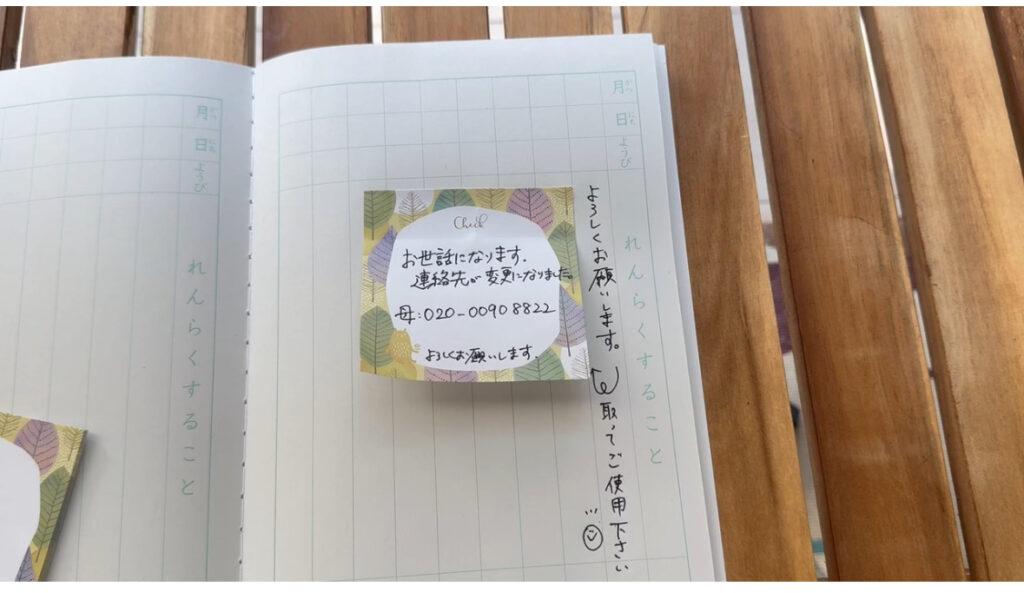 月
日
ようび
れんらくすること
よろしくお願いします。
取ってご使用下さい
Check
お世話になります.
連絡先が変更になりました。
母:020-00908822
よろしくお願いします.
月
日
ようび
れんらくすること